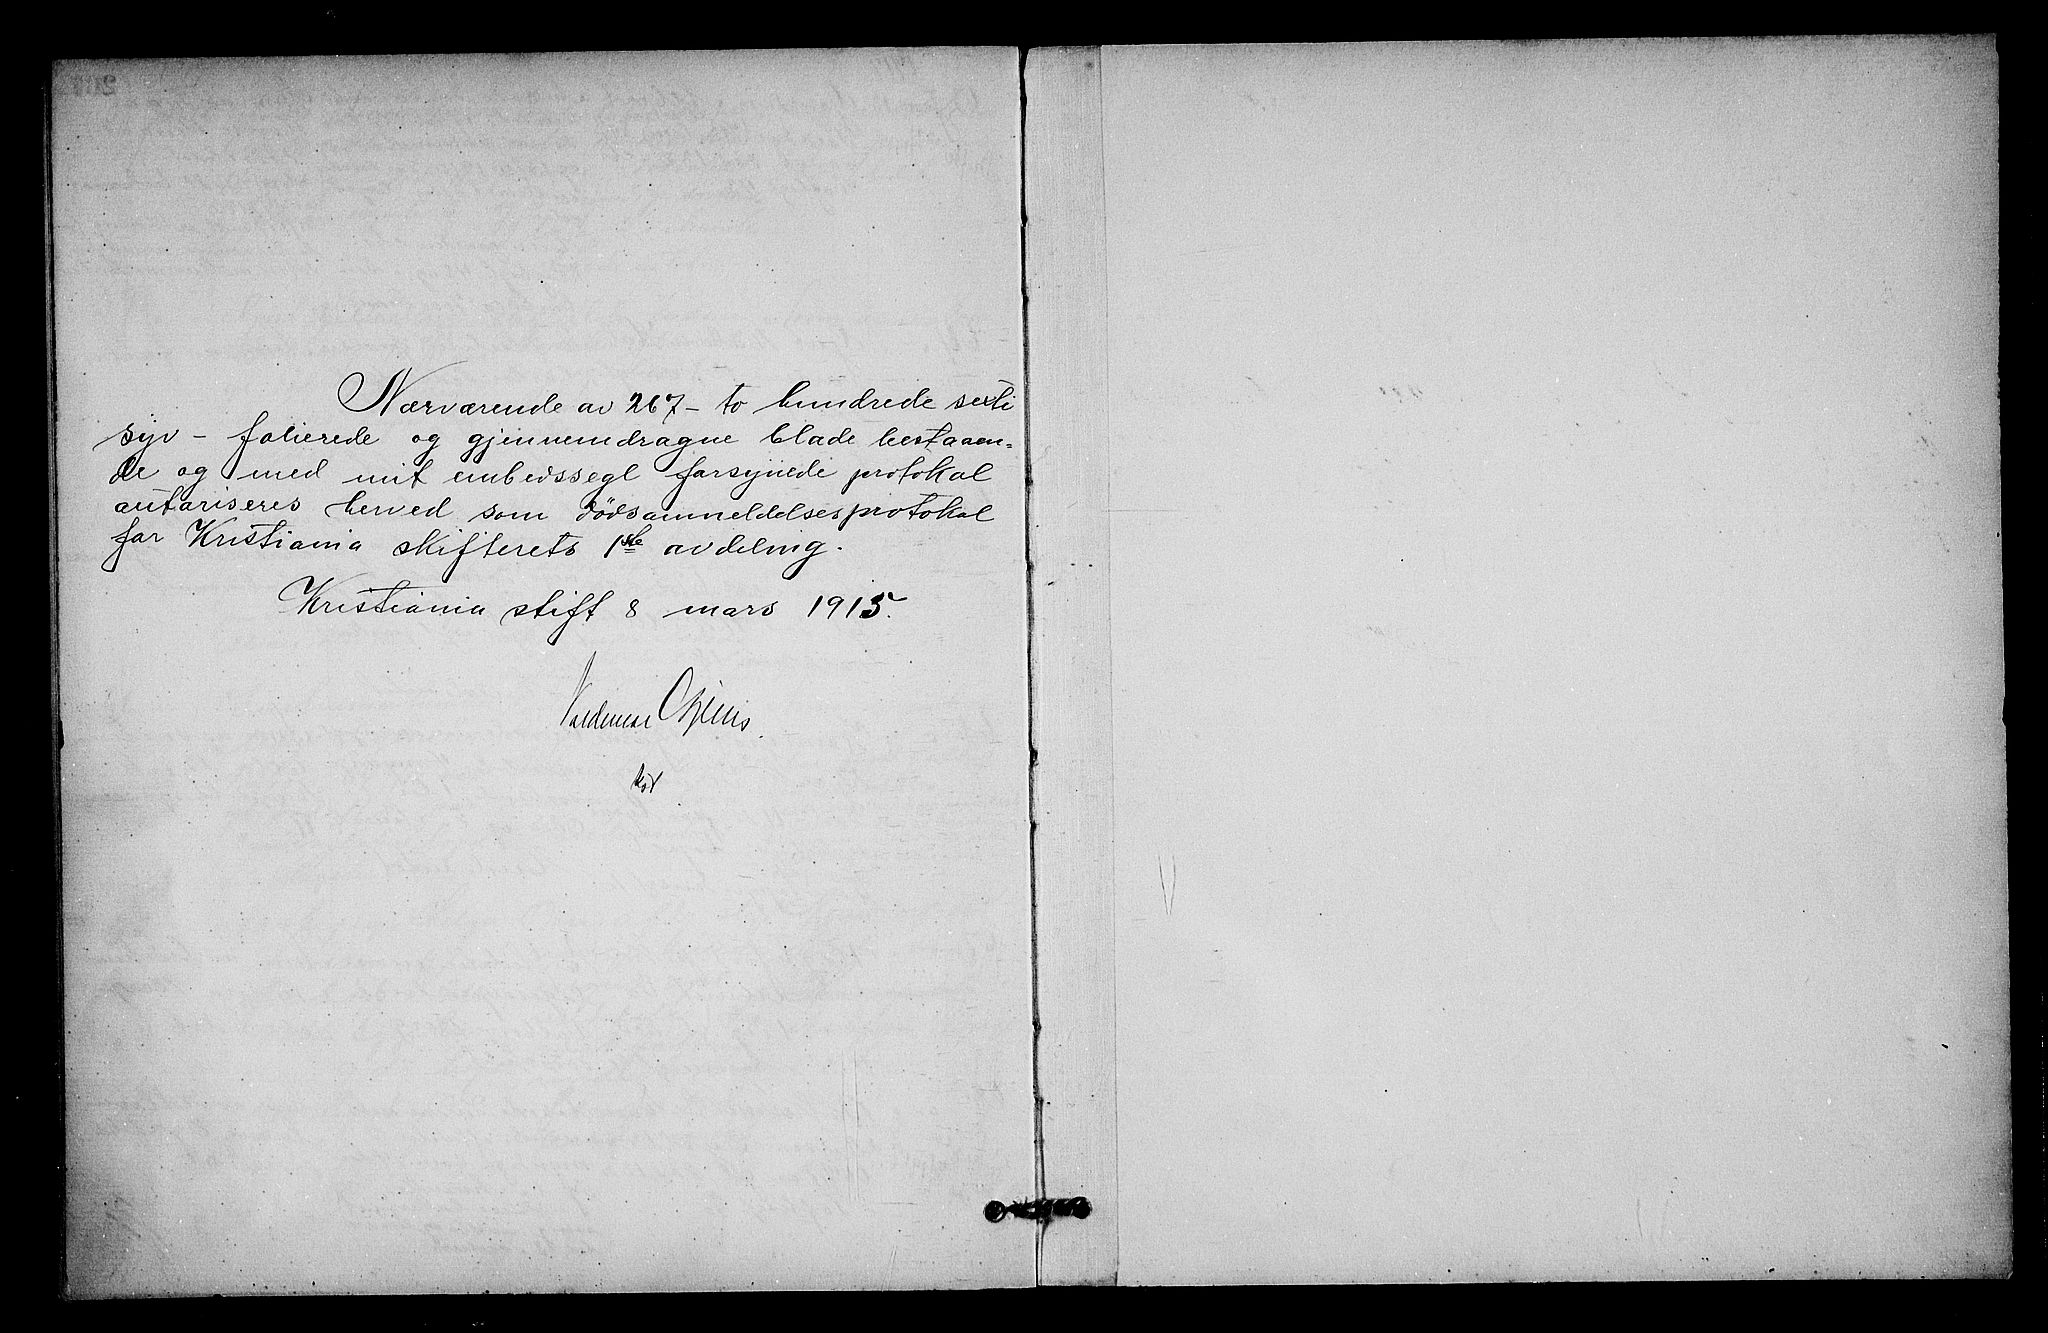 Nærværende av 267 – to hundrede sexti
syv – folierede og gjennemdragne blade bestaaen=
de og med mit embedssegl forsynede protokol
autoriseres herved som dödsanmeldelsesprotokol
for Kristiania skifterets 1ste avdeling.
Kristiania stift 8 mars 1915.
Valdemar
kst